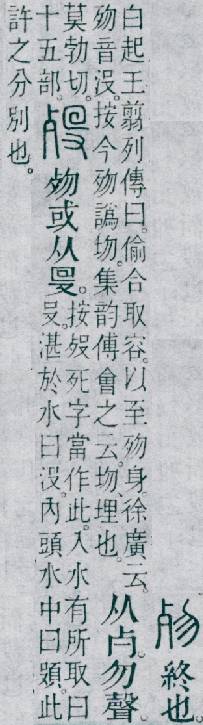 歾終也
白起王翦列傳曰。偷合取容。以至歾身。徐廣云。
歾音沒。按今歾譌圽。集韵傅會之云。圽、埋也。
从歺勿聲。
莫勃切。
十五部。
歿歾或从𠬛。
按歿死字當作此。入水有所取曰
𠬛。湛於水曰沒。內頭水中曰。此
許之分別也。